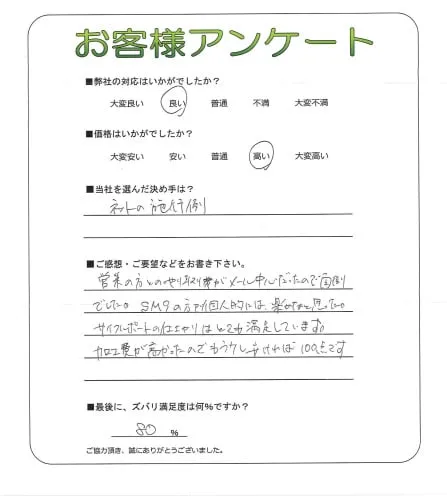 お客様アンケート
■弊社の対応はいかがでしたか？
大変良い 良い 普通 不満 大変不満
■価格はいかがでしたか？
大変安い 安い 普通 高い 大変高い
■当社を選んだ決め手は？
ネットの施行例
■ご感想・ご要望などをお書き下さい。
営業の方とのやり取りがメール中心だったので面倒
でした。SMSの方が個人的には、楽かなと思った。
サイクルポートの仕上がりはとても満足しています。
加工費が高かったのでもう少し安ければ100点です
■最後に、ズバリ満足度は何％ですか？
80 %
ご協力頂き、誠にありがとうございました。